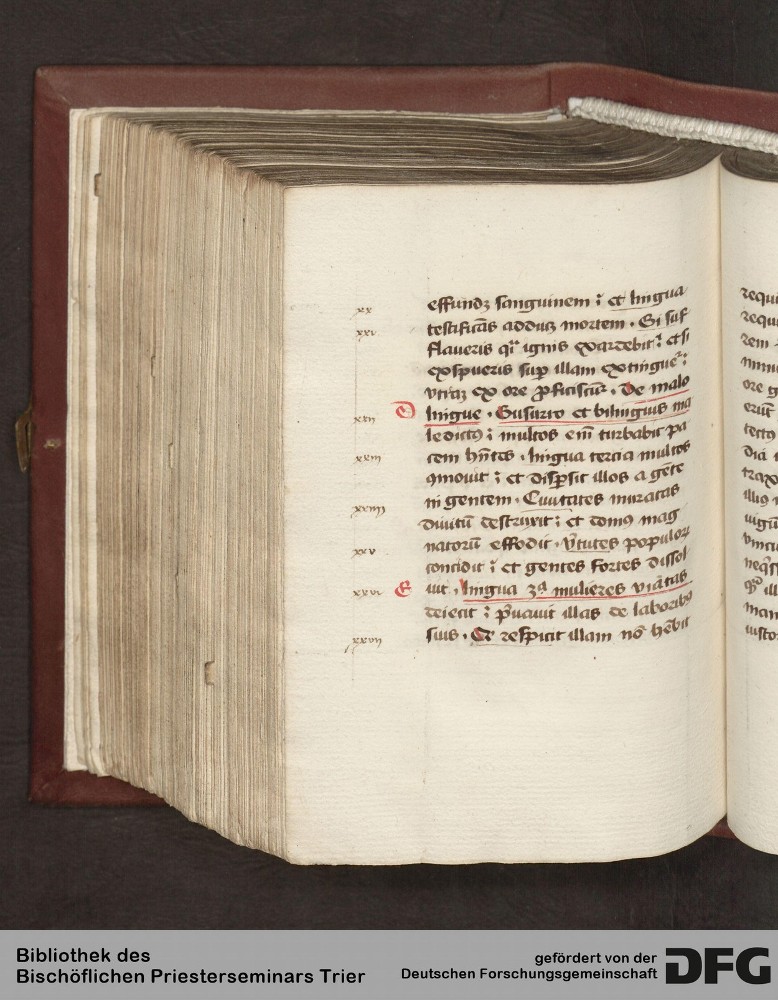 xx effundꝫ sanguinem : et lingua
xxi testificãs adducꝫ mortem . Si suf
flaueris qͣi ignis exardebit : et si
exspueris sup̱ illam extinguet͛ :
vtraqꝫ ex ore ꝓficiscũt͛ . De malo
xxii D lingue . Susurro et bilinguis ma
ledictꝰ : multos em̃ turbabit pa
xxiii cem hñtes . lingua tercia multos
ꝯmouit : et disp̱sit illos a gẽte
in gentem . Ciuitates muratas
xxiiii diuitũ destruxit : et domꝰ mag
natorũ effodit . v̾tutes populorꝫ
xxv concidit : et gentes fortes dissol
xxvi E uit . lingua 3ᵃ mulieres viratas
deiecit : p̾uauit illas de laboribꝰ
xxvii suis . Qͥ respicit illam nõ hẽbit
requi
requi
rem
ore g
erũt
tectꝰ
dia
trax
illiꝰ
iugũ
vincu
man
iusto
Bibliothek des
Bischöflichen Priesterseminars Trier
gefördert von der
Deutschen Forschungsgemeinschaft
DFG